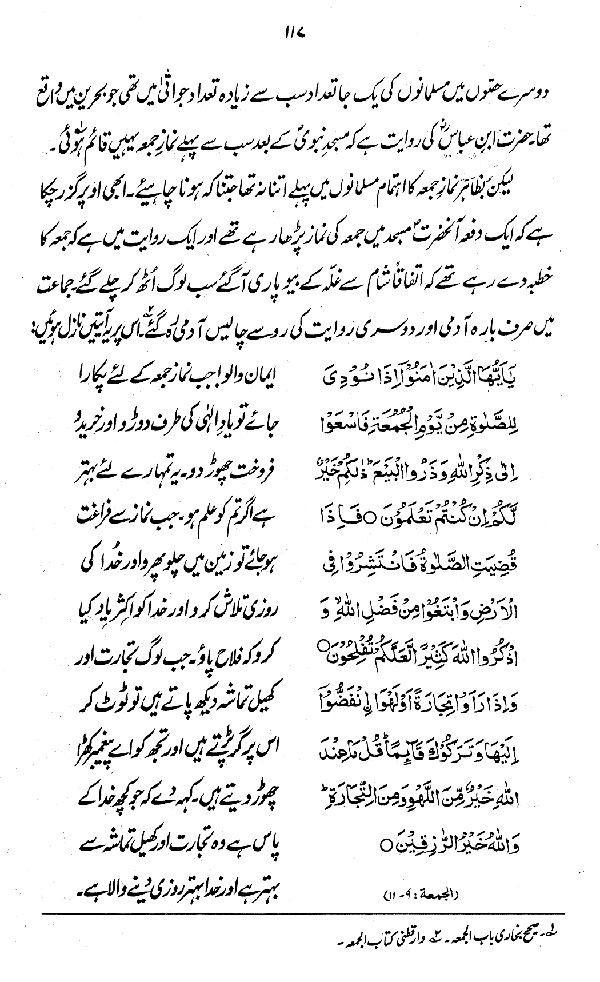 ۱۱۷
دوسرے حصّوں میں مسلمانوں کی یک جا تعداد سب سے زیادہ تعداد جواثیٰ میں تھی جو بحرین میں واقع
تھا۔ حضرت ابن عباسؓ کی روایت ہے کہ مسجد نبویؐ کے بعد سب سے پہلے نماز جمعہ یہیں قائم ہوئی۔
لیکن بظاہر نماز جمعہ کا اہتمام مسلمانوں میں پہلے اتنا نہ تھا جتنا کہ ہونا چاہیئے۔ ابھی اوپر گزر چکا
ہے کہ ایک دفعہ آنحضرتؐ مسجد میں جمعہ کی نماز پڑھا رہے تھے اور ایک روایت میں ہے کہ جمعہ کا
خطبہ دے رہے تھے کہ اتفاقاً شام سے غلّہ کے بیوپاری آگئے سب لوگ اُٹھ کر چلے گئے جماعت
میں صرف بارہ آدمی اور دوسری روایت کی رو سے چالیس آدمی رہ گئے۲؎۔ اس پر یہ آیتیں نازل ہوئیں:
يٰٓاَيُّهَا الَّذِيْنَ اٰمَنُوْٓا اِذَا نُوْدِيَ
لِلصَّلٰوةِ مِنْ يَّوْمِ الْجُمُعَةِ فَاسْعَوْا
اِلٰى ذِكْرِ اللّٰهِ وَذَرُوا الْبَيْعَ ؕ ذٰلِكُمْ خَيْرٌ
لَّكُمْ اِنْ كُنْتُمْ تَعْلَمُوْنَ ○ فَاِذَا
قُضِيَتِ الصَّلٰوةُ فَانْتَشِرُوْا فِى
الْاَرْضِ وَابْتَغُوْا مِنْ فَضْلِ اللّٰهِ وَ
اذْكُرُوا اللّٰهَ كَثِيْرًا لَّعَلَّكُمْ تُفْلِحُوْنَ ○
وَاِذَا رَاَوْا تِجَارَةً اَوْ لَهْوَا ِۨانْفَضُّوْٓا
اِلَيْهَا وَتَرَكُوْكَ قَآئِمًا ؕ قُلْ مَا عِنْدَ
اللّٰهِ خَيْرٌ مِّنَ اللَّهْوِ وَمِنَ التِّجَارَةِ ؕ
وَاللّٰهُ خَيْرُ الرّٰزِقِيْنَ ○
(الجمعۃ: ۹-۱۱)
ایمان والو! جب نماز جمعہ کے لئے پکارا
جائے تو یاد الٰہی کی طرف دوڑو اور خرید و
فروخت چھوڑ دو۔ یہ تمہارے لئے بہتر
ہے اگر تم کو علم ہو۔ جب نماز سے فراغت
ہو جائے تو زمین میں چلو پھرو اور خدا کی
روزی تلاش کرو اور خدا کو اکثر یاد کیا
کرو کہ فلاح پاؤ۔ جب لوگ تجارت اور
کھیل تماشہ دیکھ پاتے ہیں تو ٹوٹ کر
اس پر گر پڑتے ہیں اور تجھ کو اے پیغمبر کھڑا
چھوڑ دیتے ہیں۔ کہہ دے کہ جو کچھ خدا کے
پاس ہے وہ تجارت اور کھیل تماشہ سے
بہتر ہے اور خدا بہتر روزی دینے والا ہے۔
۱؎۔ صحیح بخاری باب الجمعہ۔ ۲؎ دارقطنی کتاب الجمعہ۔